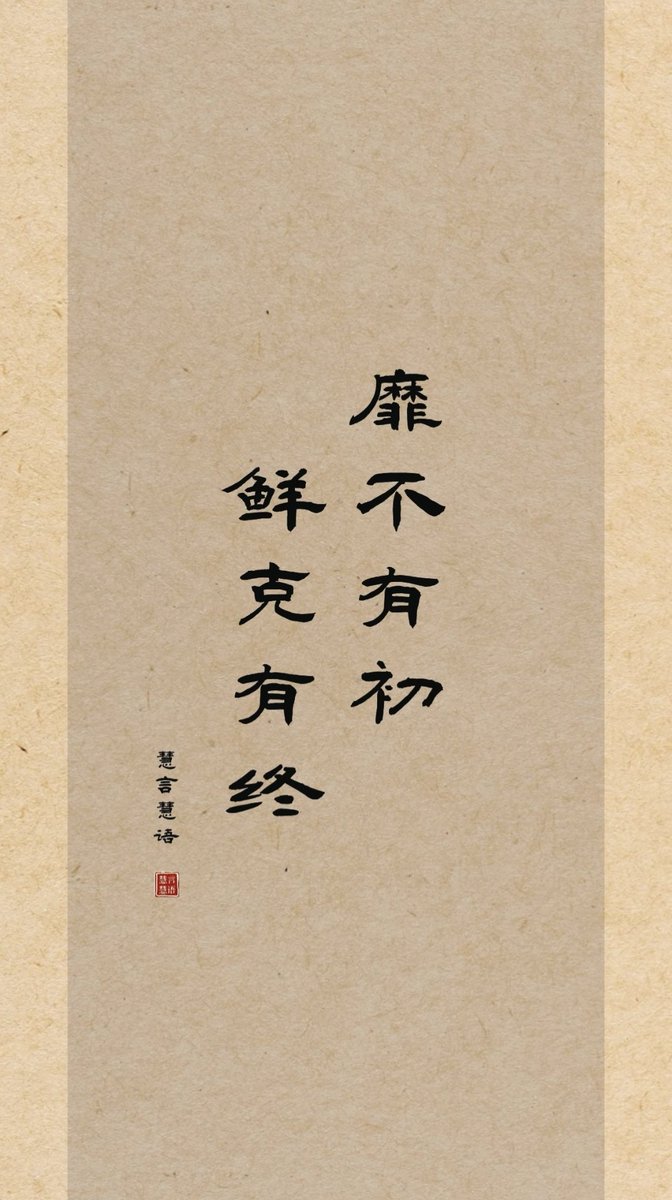 靡不有初
鲜克有终
慧言慧语
慧言慧语